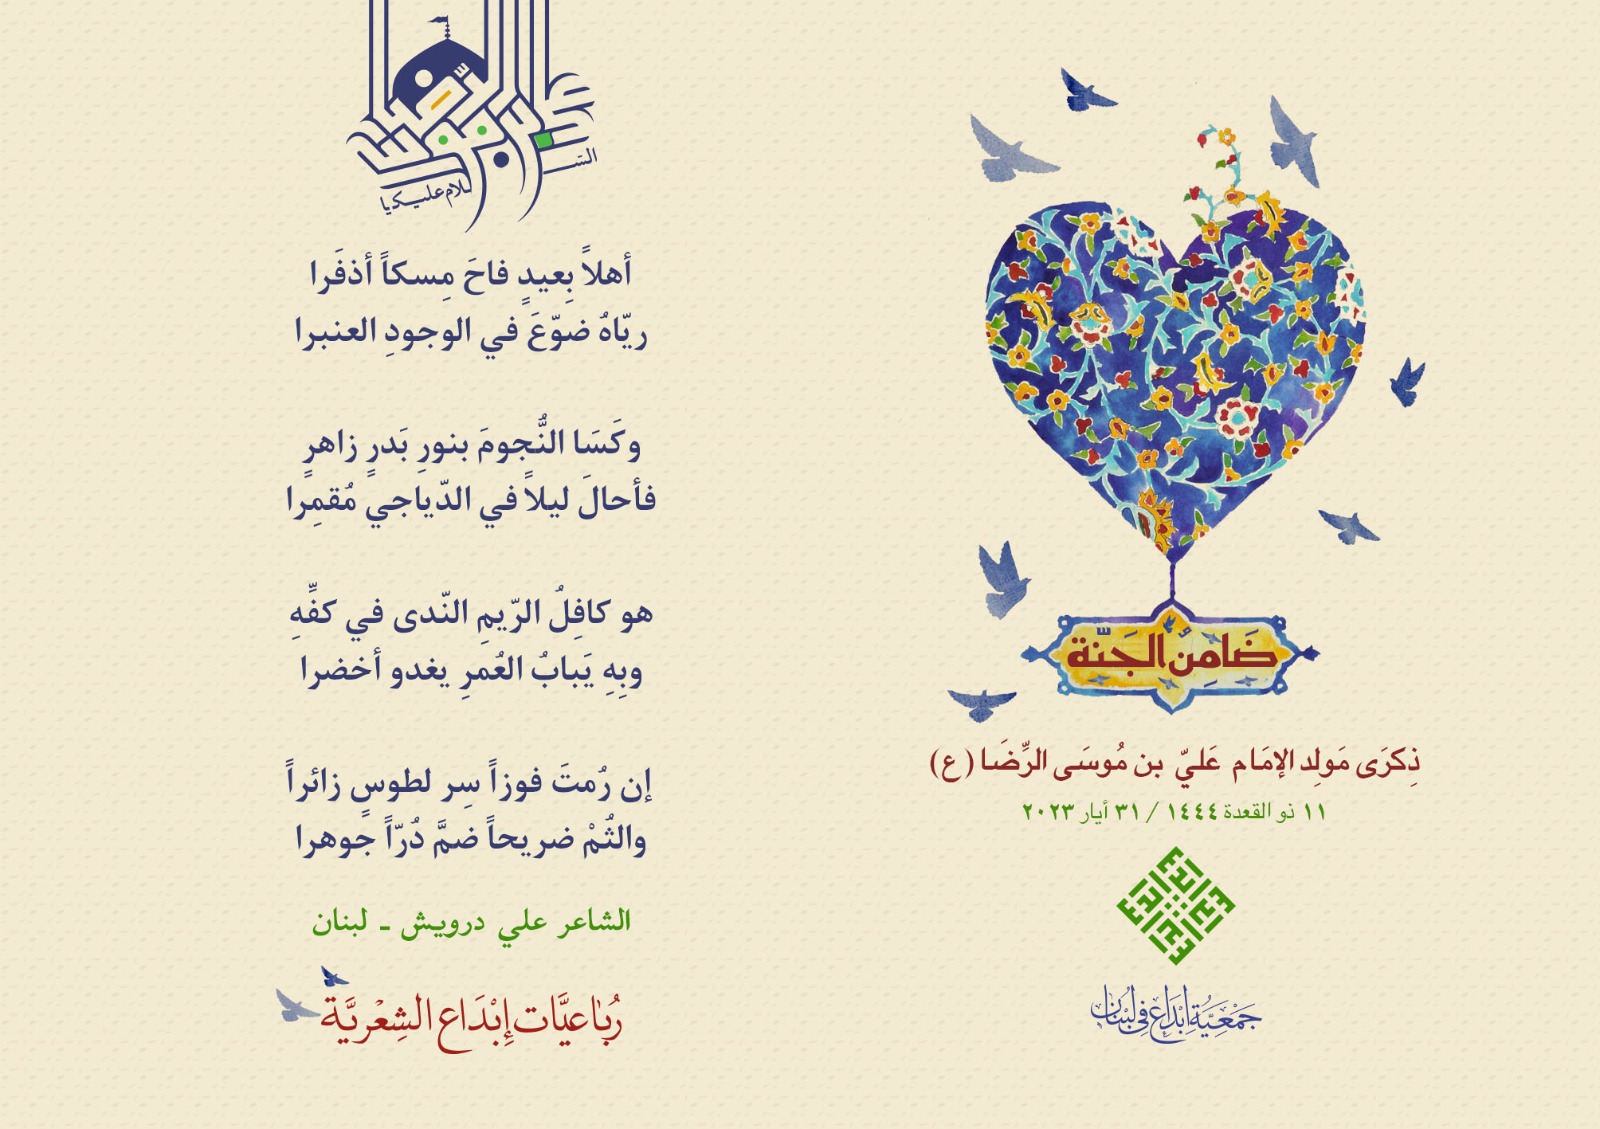 ضَامِنُ الجَنّة
ذِكرَى مَولِد الإمَام عَليّ بن مُوسَى الرِّضَا (ع)
١١ ذو القعدة ١٤٤٤ / ٣١ أيار ٢٠٢٣
جَمْعِيَّةُ إِبْدَاع فِي لُبْنَان
السّلام عليك يا
أهلاً بِعيدٍ فاحَ مِسكاً أذفَرا
ريّاهُ ضوّعَ في الوجودِ العنبرا
وكَسَا النُّجومَ بنورِ بَدرٍ زاهرٍ
فأحالَ ليلاً في الدّياجي مُقمِرا
هو كافِلُ الرّيمِ النّدى في كفِّهِ
وبِهِ يَبابُ العُمرِ يغدو أخضرا
إن رُمتَ فوزاً سِر لطوسٍ زائراً
والثُمْ ضريحاً ضمَّ دُرّاً جوهرا
الشاعر علي درويش - لبنان
رُبَاعيَّات إِبْدَاع الشِعْريَّة